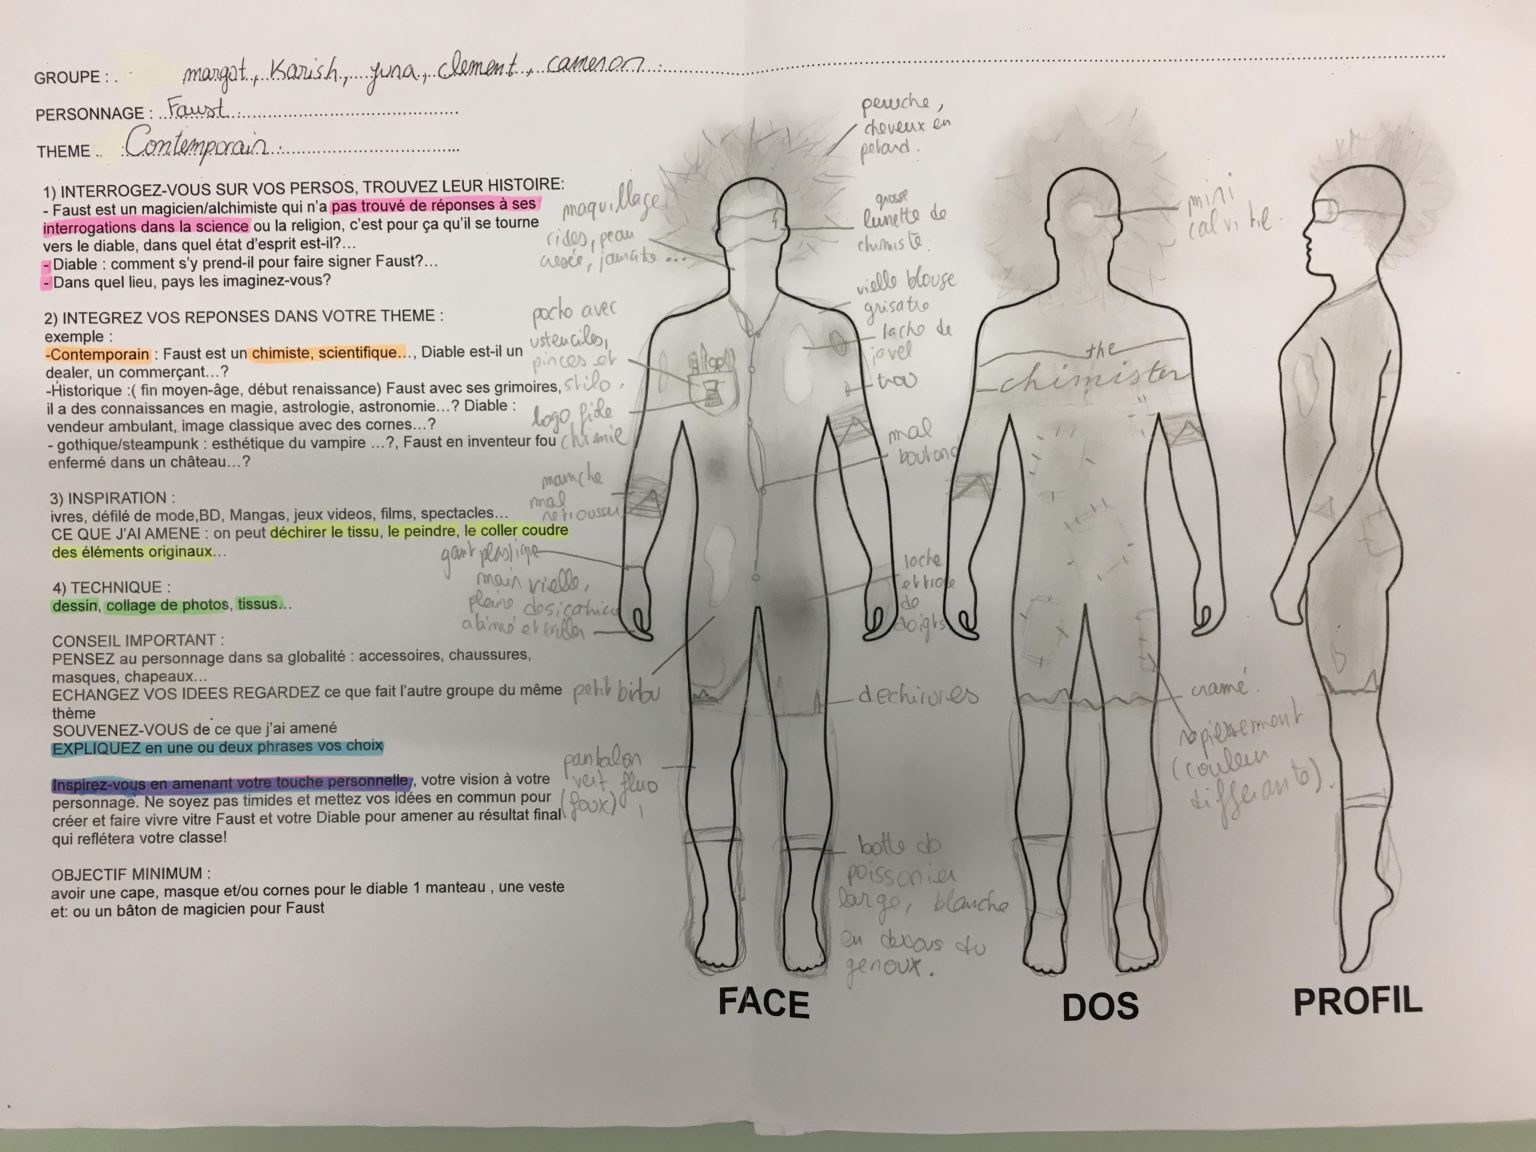 GROUPE : . margot, Karish, yuna, clement, cameron
PERSONNAGE : Faust
THEME .. Contemporain
1) INTERROGEZ-VOUS SUR VOS PERSOS, TROUVEZ LEUR HISTOIRE:
- Faust est un magicien/alchimiste qui n'a pas trouvé de réponses à ses
interrogations dans la science ou la religion, c'est pour ça qu'il se tourne
vers le diable, dans quel état d'esprit est-il?...
- Diable : comment s'y prend-il pour faire signer Faust?...
- Dans quel lieu, pays les imaginez-vous?
2) INTEGREZ VOS REPONSES DANS VOTRE THEME :
exemple :
-Contemporain : Faust est un chimiste, scientifique..., Diable est-il un
dealer, un commerçant...?
-Historique :( fin moyen-âge, début renaissance) Faust avec ses grimoires,
il a des connaissances en magie, astrologie, astronomie...? Diable :
vendeur ambulant, image classique avec des cornes...?
- gothique/steampunk : esthétique du vampire ...?, Faust en inventeur fou
enfermé dans un château...?
3) INSPIRATION :
ivres, défilé de mode,BD, Mangas, jeux videos, films, spectacles...
CE QUE J'AI AMENE : on peut déchirer le tissu, le peindre, le coller coudre
des éléments originaux...
4) TECHNIQUE :
dessin, collage de photos, tissus...
CONSEIL IMPORTANT :
PENSEZ au personnage dans sa globalité : accessoires, chaussures,
masques, chapeaux...
ECHANGEZ VOS IDEES REGARDEZ ce que fait l'autre groupe du même
thème
SOUVENEZ-VOUS de ce que j'ai amené
EXPLIQUEZ en une ou deux phrases vos choix
Inspirez-vous en amenant votre touche personnelle, votre vision à votre
personnage. Ne soyez pas timides et mettez vos idées en commun pour
créer et faire vivre vitre Faust et votre Diable pour amener au résultat final
qui reflétera votre classe!
OBJECTIF MINIMUM :
avoir une cape, masque et/ou cornes pour le diable 1 manteau , une veste
et: ou un bâton de magicien pour Faust
maquillage
rides, peau
poche avec
ustenciles,
pinces et
stilo.
logo fiole
chimie
manche
mal
retrousser
gant plastique
main vielle,
pleine de
abimé et
petit bidou
pantalon
vert fluo
perruche,
cheveux en
petard.
grosse
lunette de
chimiste.
vielle blouse
grisatre
tache de
javel
trou
mal
boutonné
tache
de
doigts
dechirures
botte de
poissonier
large, blanche
en dessous du
genoux.
mini
calvitie.
the
chimister
cramé.
(couleur
differante).
FACE
DOS
PROFIL